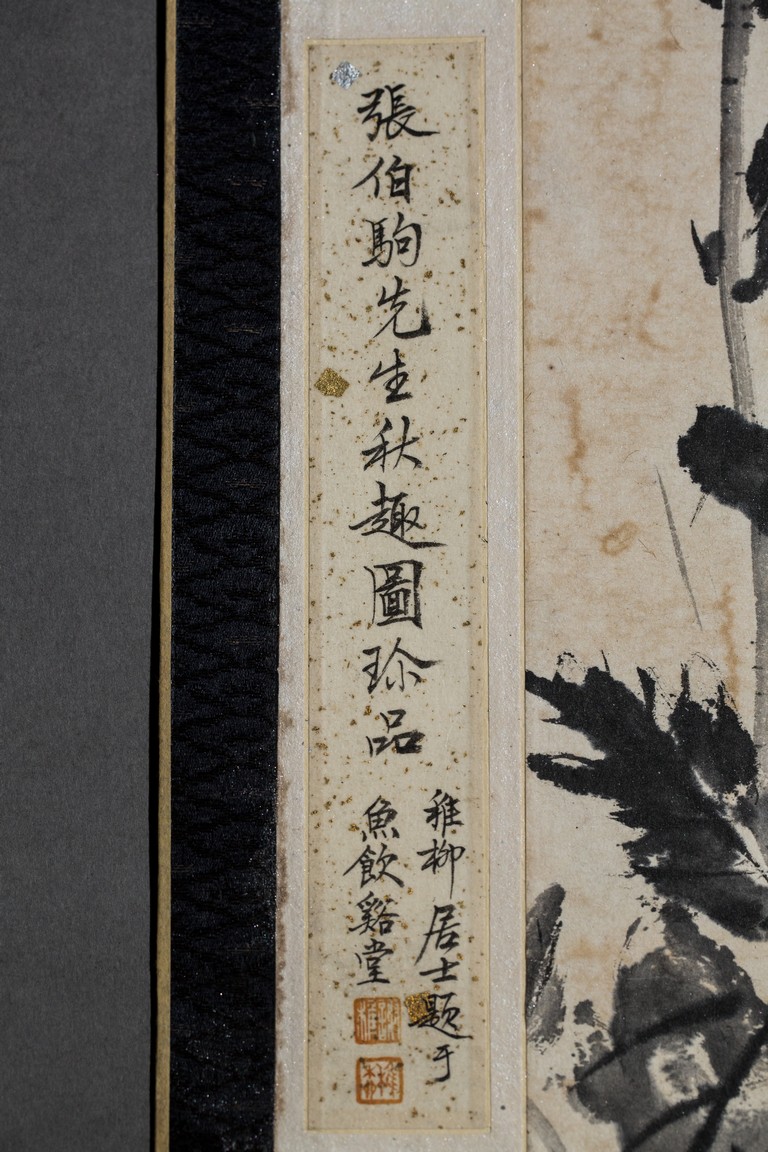 張伯駒先生秋趣圖珍品
稚柳居士题于
魚飲谿堂